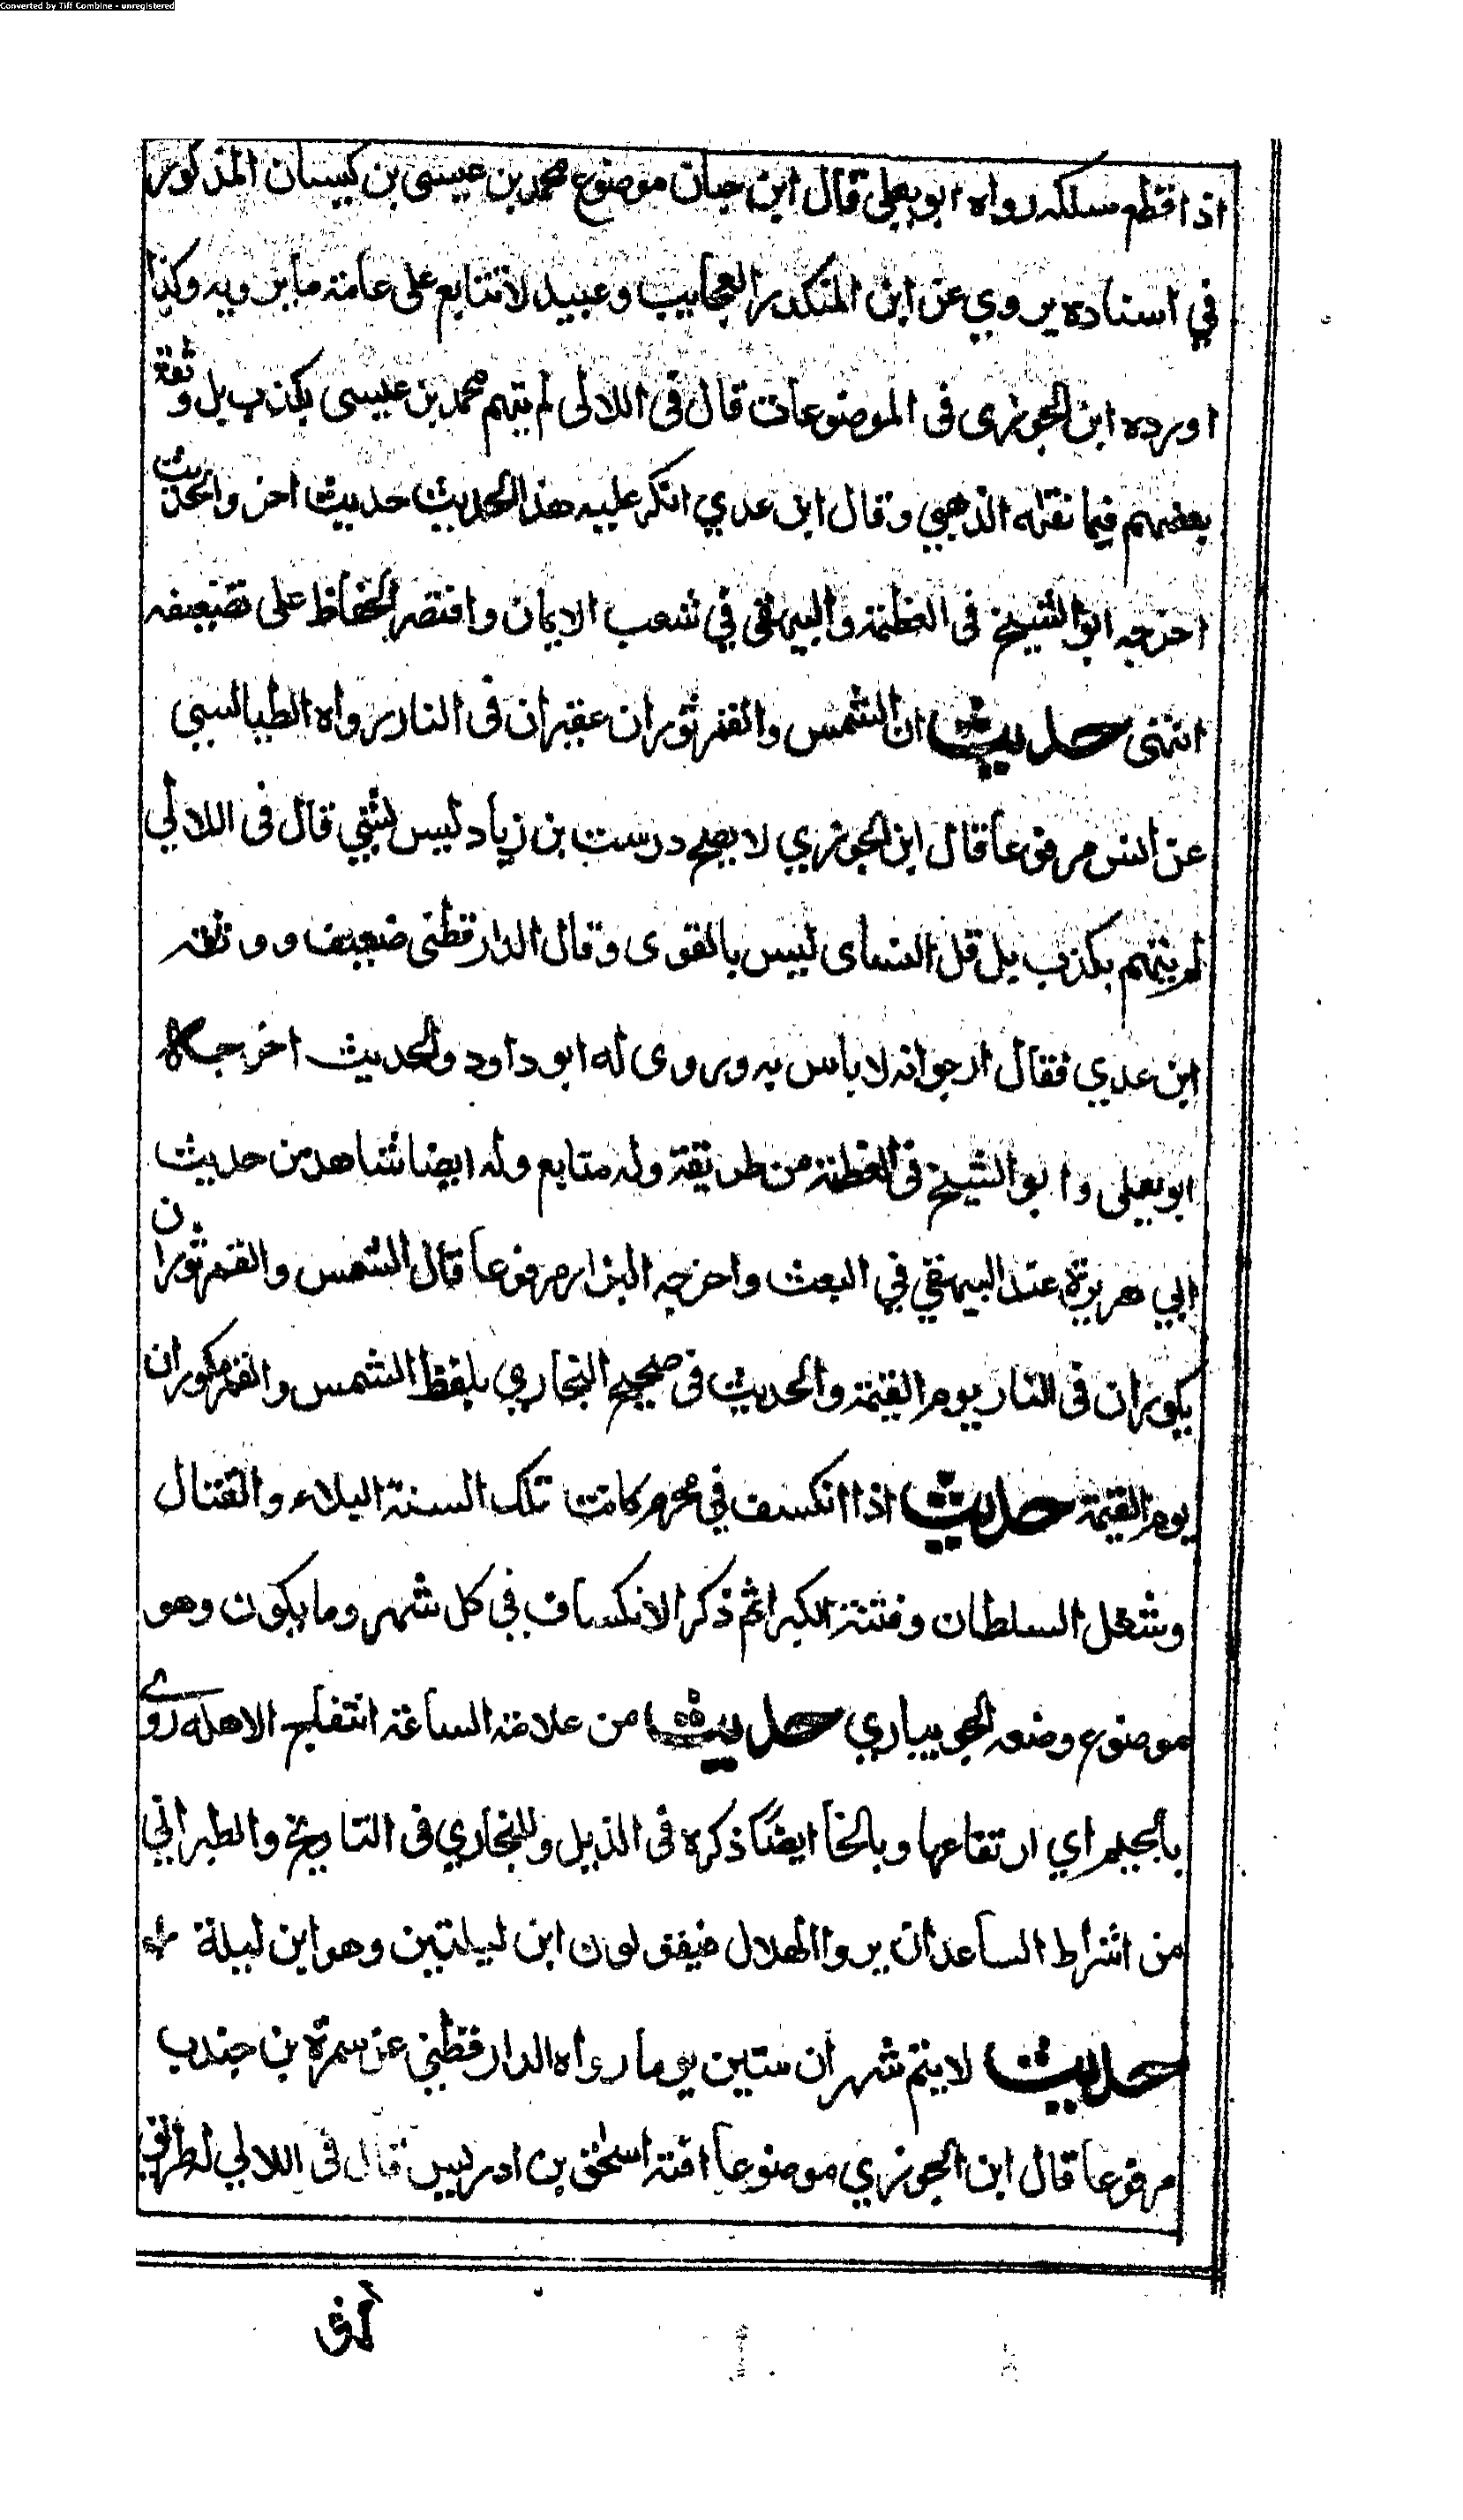 Converted by Tiff Combine - unregistered
اذا قطع سلكه رواه ابو يعلى قال ابن حبان موضوع محمد بن عيسى بن كيسان المذكور
في اسناده يروي عن ابن المنكدر العجايب وعبيد لا تتابع على عامة ما يرويه وكذا
اورده ابن الجوزى فى الموضوعات قال فى اللالى لم يتهم محمد بن عيسى بكذب بل وثقه
بعضهم فيما نقله الذهبي وقال ابن عدي انكر عليه هذا الحديث حديث اخر والحديث
اخرجه ابو الشيخ فى العظمة والبيهقى في شعب الايمان واقتصر الحفاظ على تضعيفه
انتهى حديث ان الشمس والقمر ثوران عقيران فى النار رواه الطيالسي
عن انس مرفوعا قال ابن الجوزي لا يصح درست بن زياد ليس بشي قال فى اللالي
لم يتهم بكذب بل قل النساى ليس بالقوى وقال الدارقطنى ضعيف ووثقه
ابن عدي فقال ارجوانه لا باس به وبروى له ابو داود والحديث اخرجه
ابو يعلى وابو الشيخ فى العظمة من طريقة وله متابع وله ايضا شاهد من حديث
ابي هريرة عند البيهقي في البعث واخرجه البزار مرفوعا قال الشمس والقمر ثوران
يكوران فى النار يوم القيمة والحديث فى صحيح البخاري بلفظ الشمس والقمر مكوران
يوم القيمة حديث اذا انكسف في محرم كانت تلك السنة البلاء والقتال
وشغل السلطان وفتنة الكبرا ثم ذكر الانكساف في كل شهر وما يكون وهو
موضوع وضعه الجويباري حديث من علامة الساعة انتفاج الاهله روي
بالجيم اي ارتفاعها وبالخا ايضًا ذكره فى الذيل وللبخاري فى التاريخ والطبراني
من اشراط الساعة ان يروا الهلال فيقولون ابن ليلتين وهو ابن ليلة
حديث لا يتم شهران ستين يوما رواه الدارقطني عن سمرة بن جندب
مرفوعا قال ابن الجوزي موضوعا افته اسحق بن ادريس قال فى اللالي